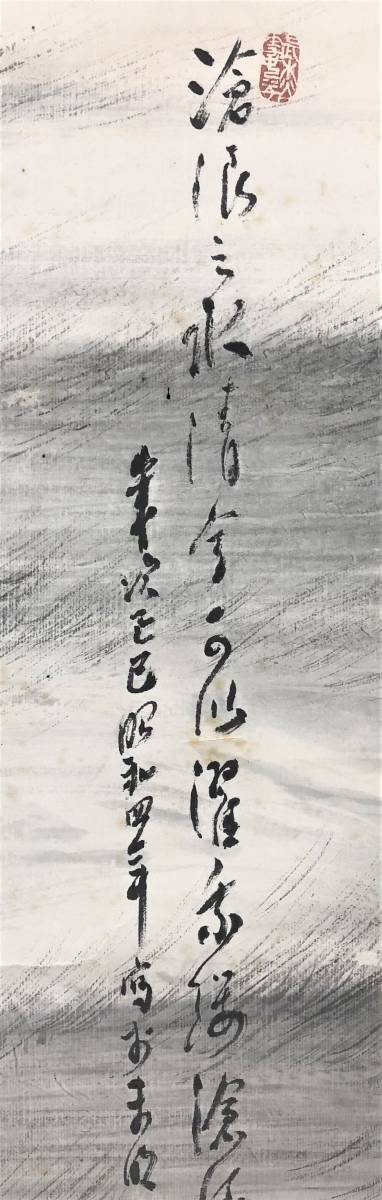 滄浪之水清兮可以濯我纓滄浪
歳次己巳昭和四年寫於青